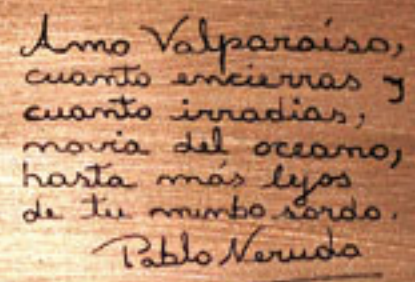 Amo Valparaíso,
cuanto encierras y
cuanto irradias,
novia del oceano,
hasta más lejos
de tu nimbo sordo.
Pablo Neruda